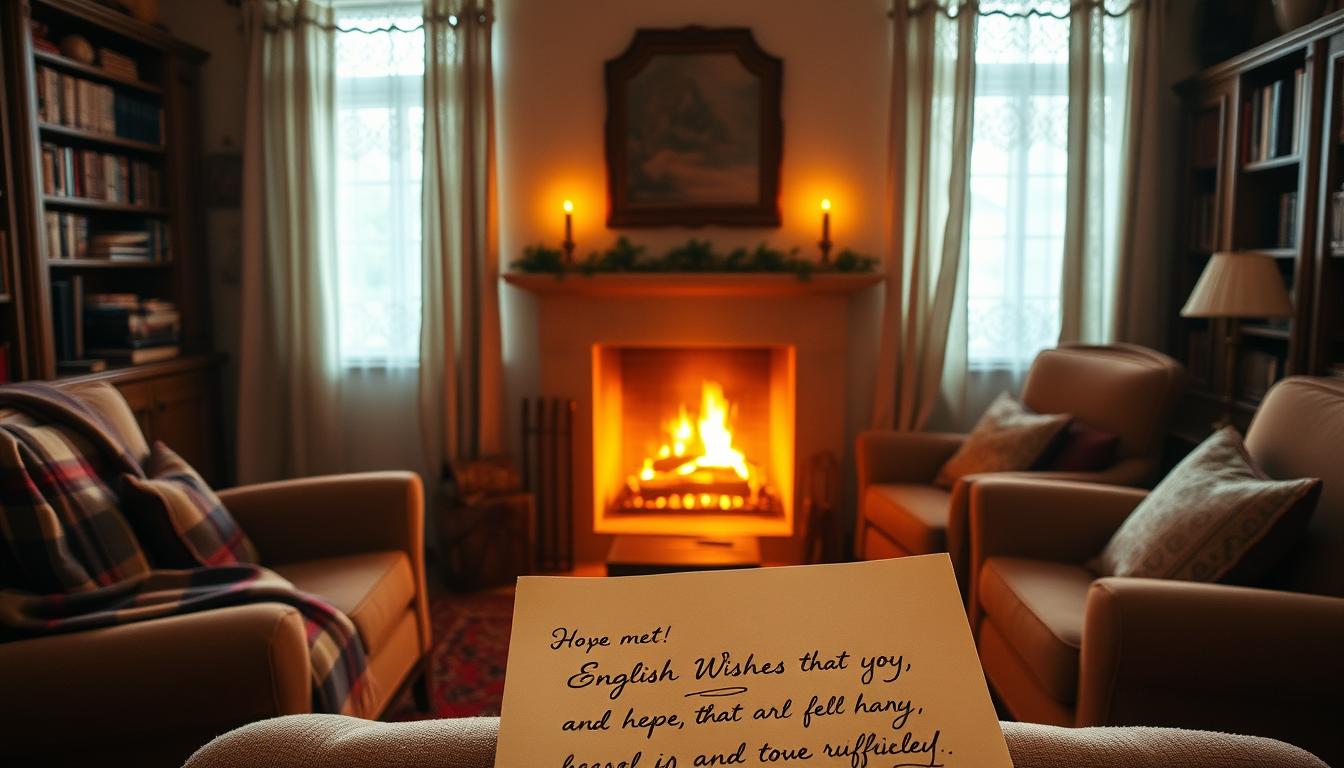 Hope met!
English Wishes that yoy,
and hepe, that arl fell hany,
and tove rufficled..